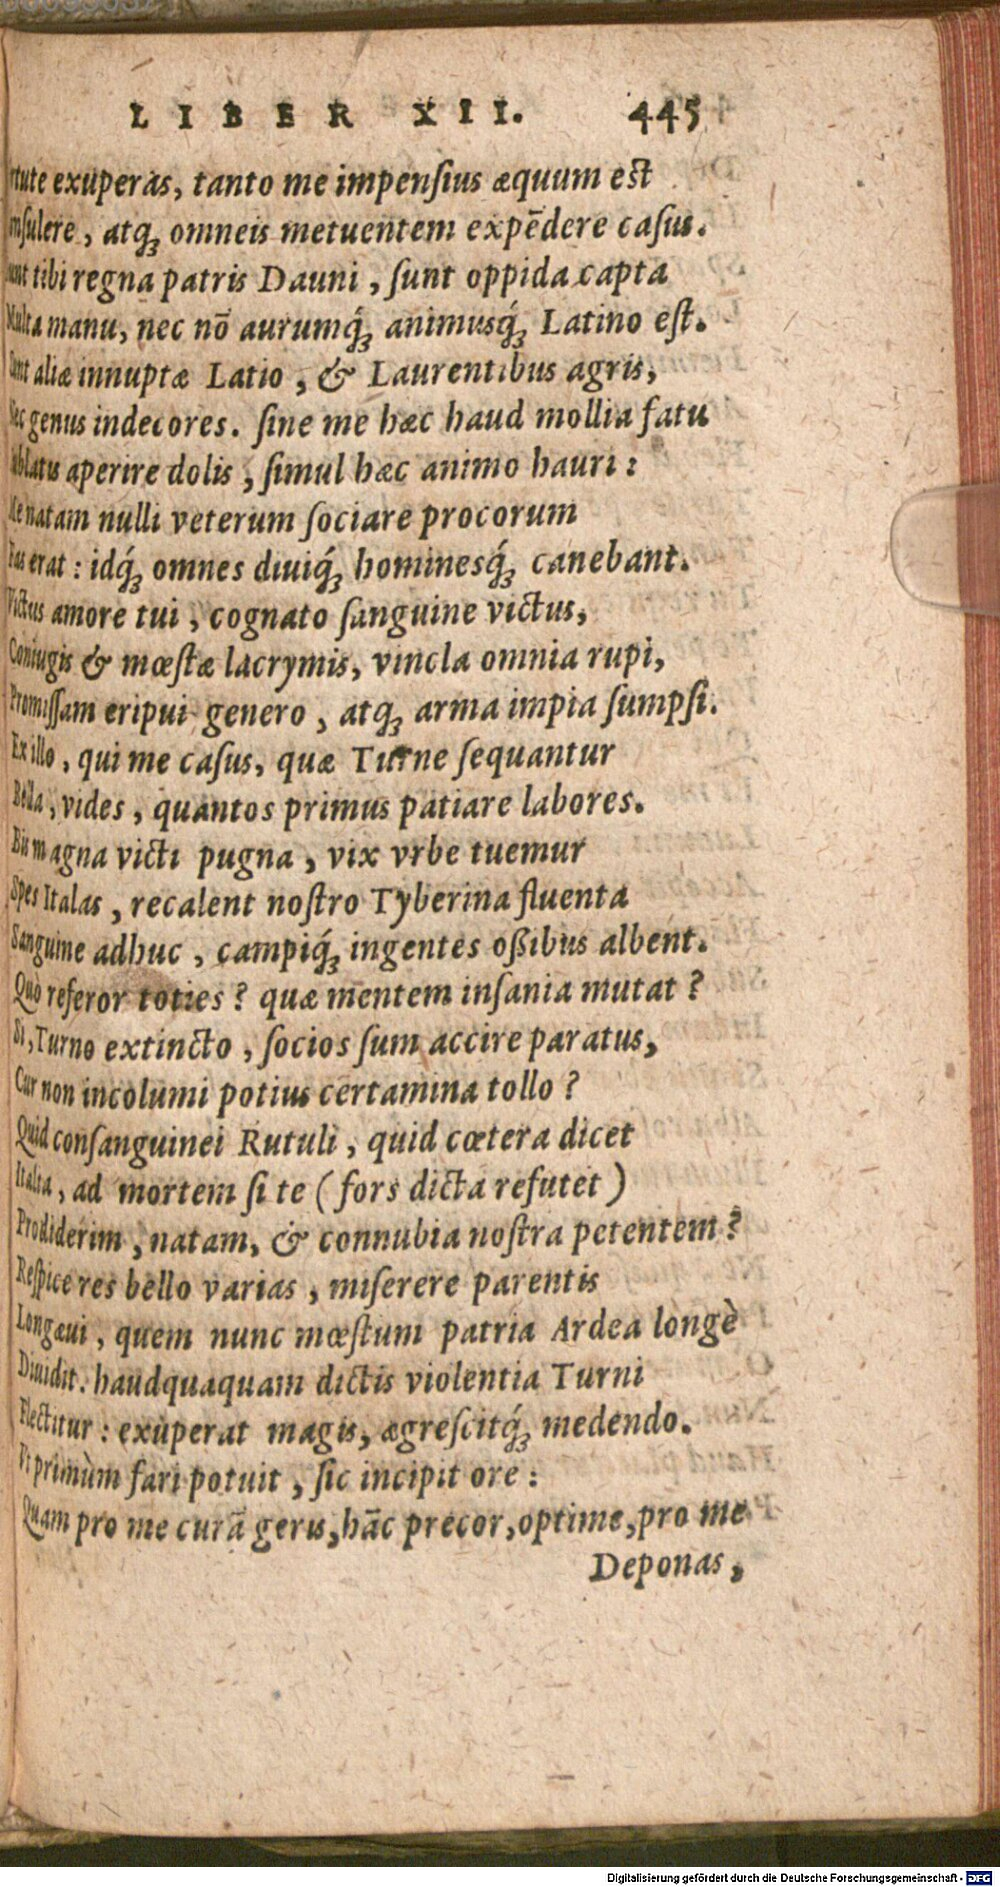 LIBER XII. 445
rtute exuperas, tanto me impensius æquum est
nsulere, atq; omneis metuentem expēdere casus.
unt tibi regna patris Dauni, sunt oppida capta
Multa manu, nec nō aurumq́; animusq́; Latino est.
Sunt aliæ innuptæ Latio, & Laurentibus agris,
Nec genus indecores. sine me hæc haud mollia fatu
ublatis aperire dolis, simul hæc animo hauri:
Me natam nulli veterum sociare procorum
Fas erat: idq́; omnes diuiq́; hominesq́; canebant.
Victus amore tui, cognato sanguine victus,
Coniugis & mœstæ lacrymis, vincla omnia rupi,
Promissam eripui genero, atq; arma impia sumpsi.
Ex illo, qui me casus, quæ Turne sequantur
Bella, vides, quantos primus patiare labores.
Bis magna victi pugna, vix vrbe tuemur
Spes Italas, recalent nostro Tyberina fluenta
Sanguine adhuc, campiq́; ingentes ossibus albent.
Quo referor toties? quæ mentem insania mutat?
Si, Turno extincto, socios sum accire paratus,
Cur non incolumi potius certamina tollo?
Quid consanguinei Rutuli, quid cœtera dicet
Italia, ad mortem si te (fors dicta refutet)
Prodiderim, natam, & connubia nostra petentem?
Respice res bello varias, miserere parentis
Longæui, quem nunc mœstum patria Ardea longè
Diuidit. haudquaquam dictis violentia Turni
Flectitur: exuperat magis, ægrescitq́; medendo.
Vt primùm fari potuit, sic incipit ore:
Quam pro me curā geris, hāc precor, optime, pro me
Deponas,
Digitalisierung gefördert durch die Deutsche Forschungsgemeinschaft - DFG